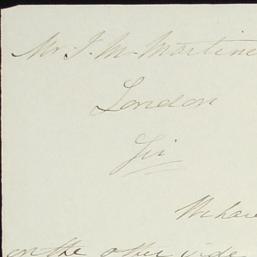 Mr. J. M. Martine
London
Sir
We have
on the other side